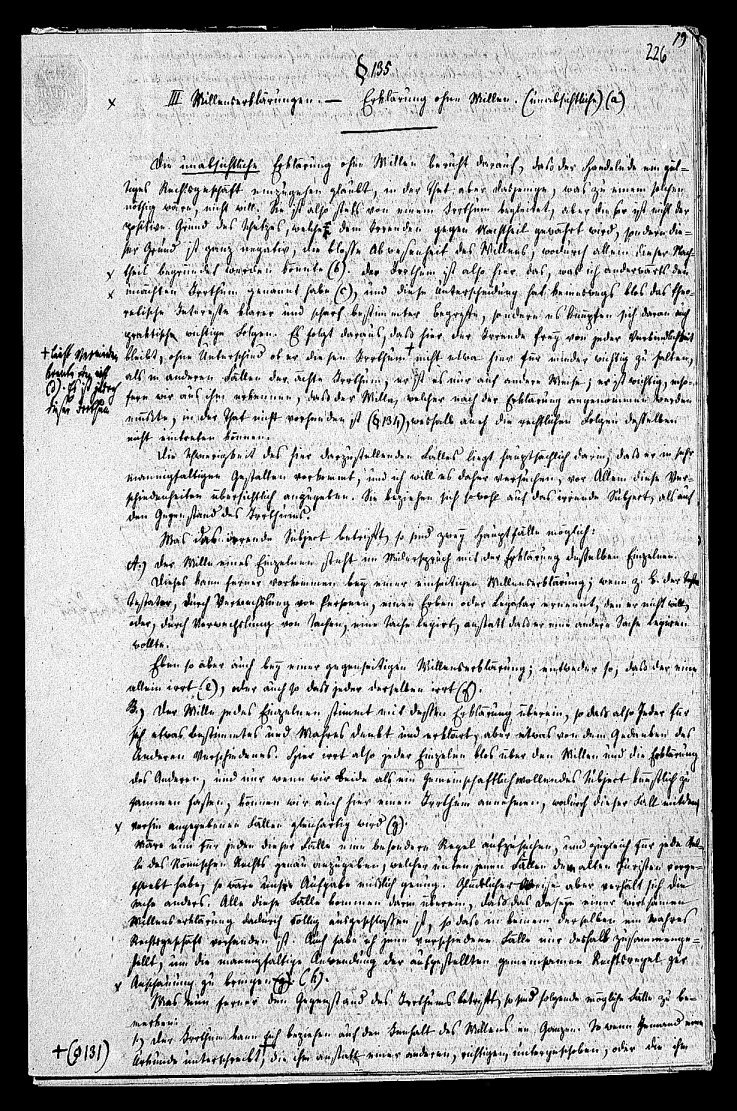 19
226
§ 135.
x III Willenserklärungen. — Erklärung ohne Willen. (unabsichtliche) (a)
Die unabsichtliche Erklärung ohne Willen beruht darauf, daß der Handelnde ein gül=
tiges Rechtsgeschäft einzugehen glaubt, in der That aber dasjenige, was zu einem solchen
nöthig wäre, nicht will. Sie ist also stets von einem Irrthum begleitet, aber dieser ist nicht der
positive Grund des Schutzes, welcher dem Irrenden gegen Nachtheil gewährt wird, sondern die=
ser Grund ist ganz negativ, die bloße Abwesenheit des Willens, wodurch allein dieser Nach=
x theil begründet werden könnte (b). Der Irrthum ist also hier das, was ich anderwärts den
x unächten Irrthum genannt habe (c), und diese Unterscheidung hat keineswegs blos das theo=
retische Interesse klarer und scharf bestimmter Begriffe, sondern es knüpfen sich daran auch
praktisch wichtige Folgen. Es folgt daraus, daß hier der Irrende frey von jeder Verbindlichkeit
bleibt, ohne Unterschied ob er diesen Irrthum + nicht etwa hier für minder wichtig zu halten,
+ leicht vermeiden
konnte oder nicht
(d). Es ist jedoch
dieser Irrthum
als in anderen Fällen der ächte Irrthum, er ist es nur auf andere Weise; er ist wichtig, inso=
fern wir aus ihm erkennen, daß der Wille, welcher nach der Erklärung angenommen werden
müßte, in der That nicht vorhanden ist (§ 134), weshalb auch die rechtlichen Folgen desselben
nicht eintreten können.
Die Schwierigkeit des hier darzustellenden Falles liegt hauptsächlich darin, daß er in sehr
mannigfaltigen Gestalten vorkommt, und ich will es daher versuchen, vor Allem diese Ver=
schiedenheiten übersichtlich anzugeben. Sie beziehen sich sowohl auf das irrende Subject, als auf
den Gegenstand des Irrthums.
Was das irrende Subject betrifft, so sind zwey Hauptfälle möglich:
A.) Der Wille eines Einzelnen steht im Widerspruch mit der Erklärung desselben Einzelnen.
Dieses kann ferner vorkommen bey einer einseitigen Willenserklärung; wenn z. B. der
Testator, durch Verwechslung von Personen, einen Erben oder Legatar ernennt, den er nicht will,
oder, durch Verwechslung von Sachen, eine Sache legirt, anstatt daß er eine andere Sache legiren
wollte.
Eben so aber auch bey einer gegenseitigen Willenserklärung; entweder so, daß der eine
allein irrt (e), oder auch so daß jeder derselben irrt (f).
B.) Der Wille jedes Einzelnen stimmt mit dessen Erklärung überein, so daß also Jeder für
sich etwas Bestimmtes und Wahres denkt und erklärt, aber etwas von dem Gedanken des
Anderen Verschiedenes. Hier irrt also jeder Einzelne blos über den Willen und die Erklärung
des Anderen, und nur wenn wir Beide als ein gemeinschaftlich wollendes Subject künstlich zu=
sammen fassen, können wir auch hier einen Irrthum annehmen, wodurch dieser Fall mit den
x vorhin angegebenen Fällen gleichartig wird (g).
Wäre nun für jeden dieser Fälle eine besondere Regel aufzusuchen, und zugleich für jede Stel=
le des Römischen Rechts genau anzugeben, welcher unter jenen Fällen den alten Juristen vorge=
schwebt habe, so wäre unsre Aufgabe mißlich genug. Glücklicher Weise aber verhält sich die
Sache anders. Alle diese Fälle kommen darin überein, daß das Daseyn einer wirksamen
Willenserklärung dadurch völlig ausgeschlossen ist, so daß in keinem derselben ein wahres
Rechtsgeschäft vorhanden ist. Auch habe ich jene verschiedene Fälle nur deshalb zusammenge=
stellt, um die mannigfaltige Anwendung der aufgestellten gemeinsamen Rechtsregel zur
x Anschauung zu bringen (h).
Was nun ferner den Gegenstand des Irrthums betrifft, so sind folgende mögliche Fälle zu be=
merken:
1.) Der Irrthum kann sich beziehen auf den Inhalt des Willens im Ganzen. So wenn Jemand eine
+ (§ 131)
Urkunde unterschreibt +, die ihm anstatt einer anderen, richtigen, untergeschoben, oder die ihm